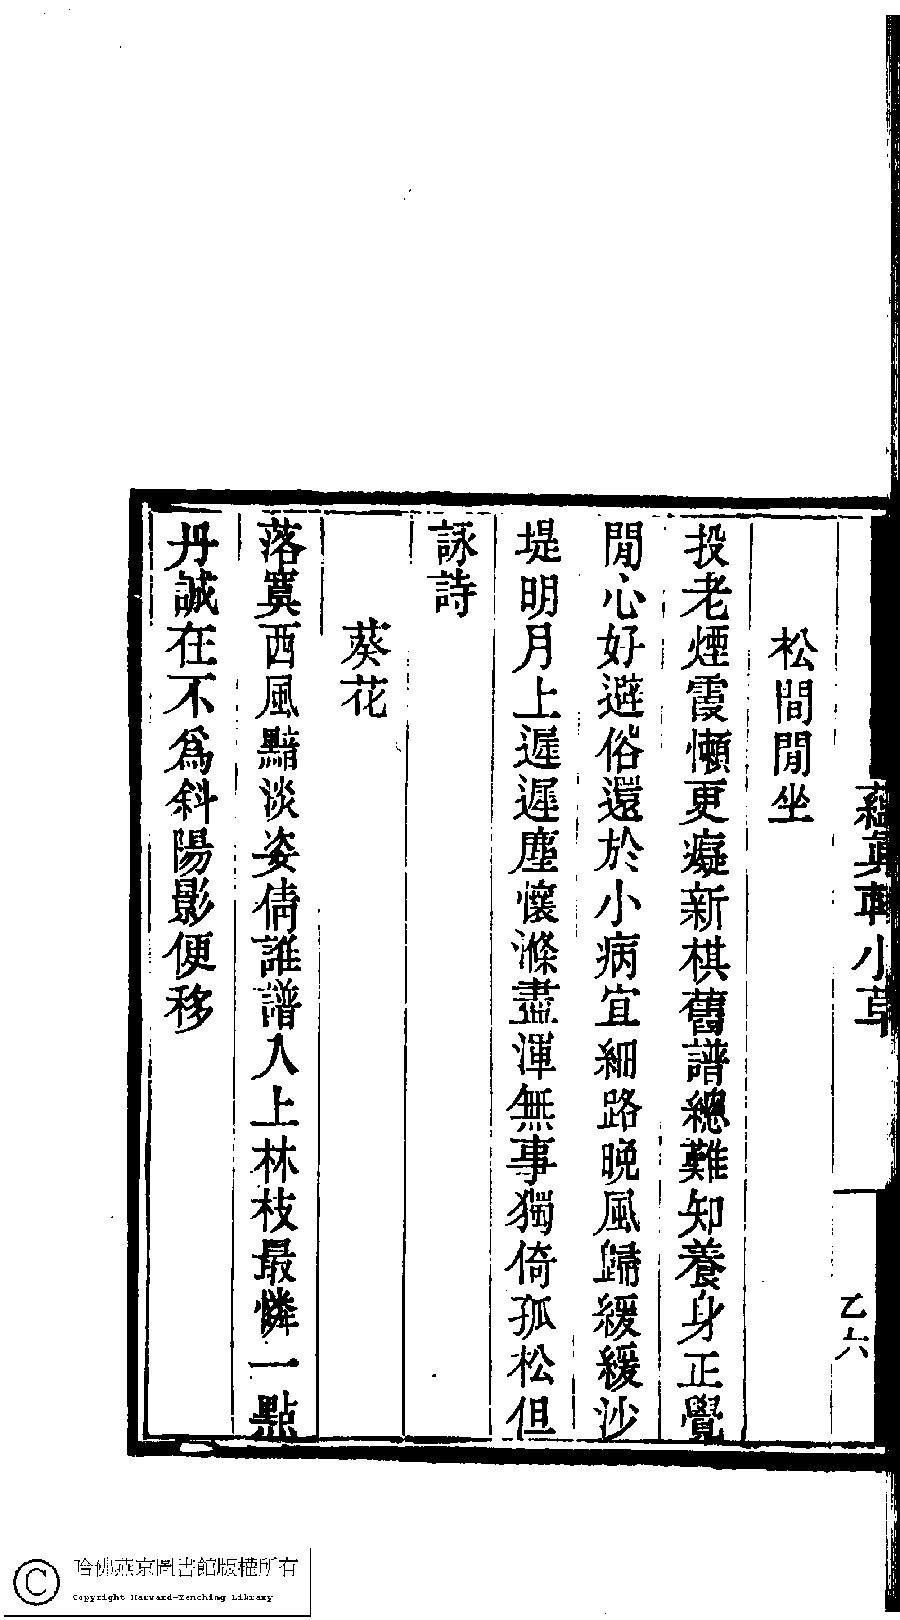 蘊眞軒小草
乙六
松間閒坐
投老煙霞懶更癡新棋舊譜總難知養身正覺
閒心好避俗還於小病宜細路晚風歸緩緩沙
堤明月上遲遲塵懷滌盡渾無事獨倚孤松但
詠詩
葵花
落寞西風黯淡姿倩誰譜入上林枝最憐一點
丹誠在不爲斜陽影便移
哈佛燕京圖書館版權所有
Copyright Harvard-Yenching Library